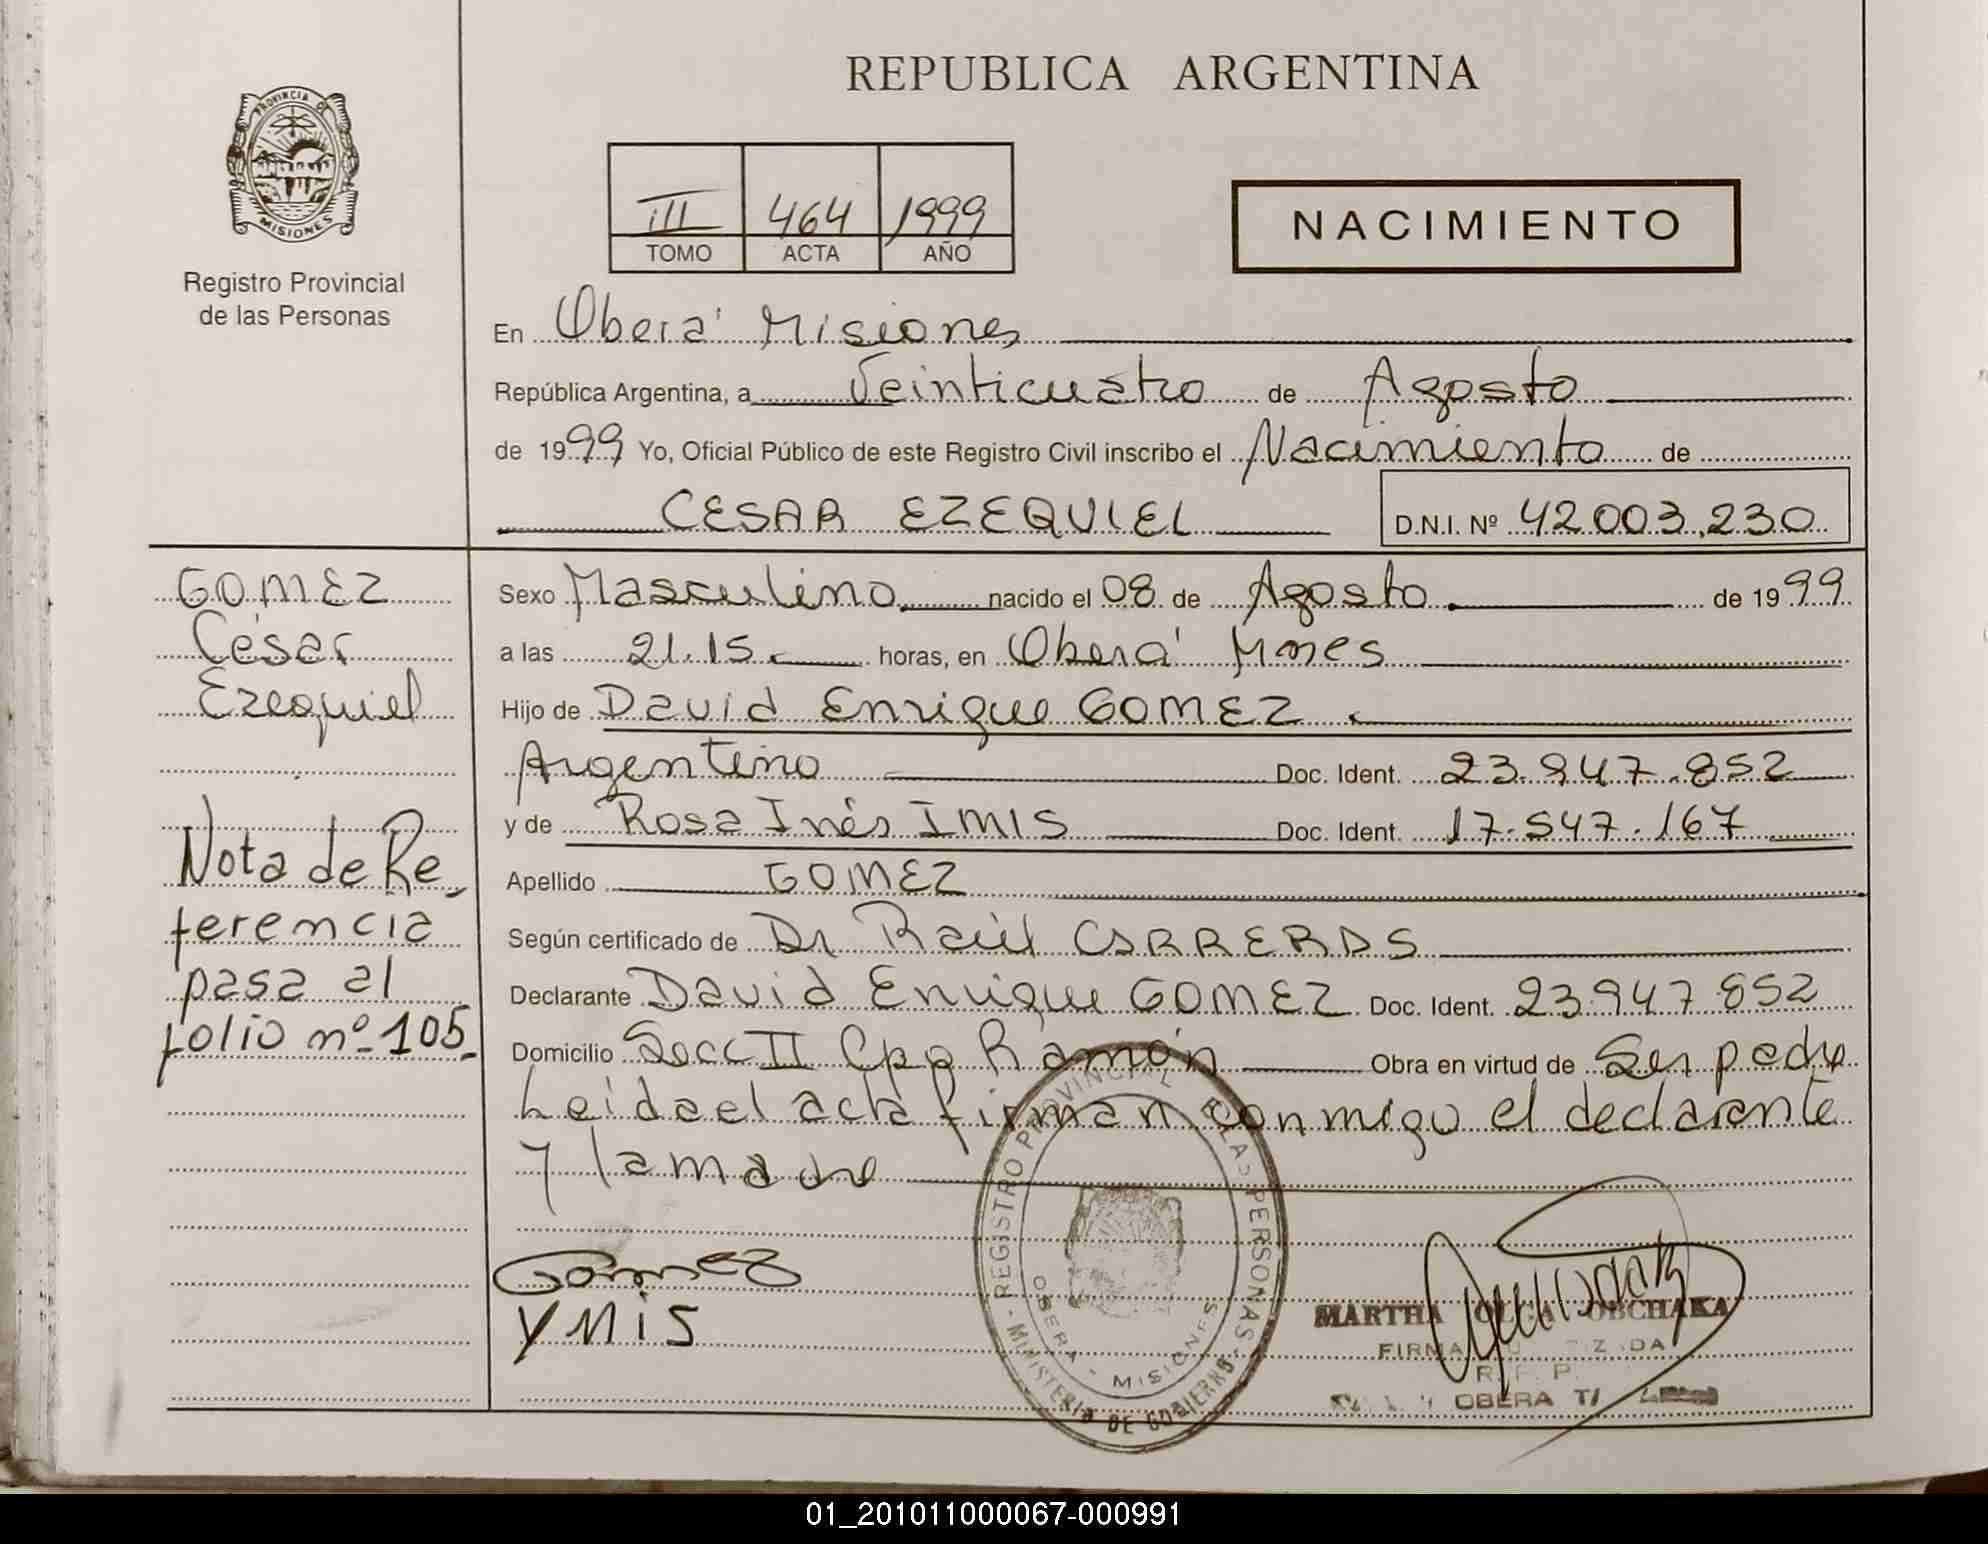 REPUBLICA ARGENTINA
PROVINCIA DE
MISIONES
Registro Provincial
de las Personas
III 464 1999
TOMO ACTA AÑO
NACIMIENTO
En Oberá Misiones
República Argentina, a Veinticuatro de Agosto
de 1999 Yo, Oficial Público de este Registro Civil inscribo el Nacimiento de
CESAR EZEQUIEL D.N.I. Nº 42003.230
GOMEZ
César
Ezequiel
Nota de Re_
ferencia
pasa al
folio nº 105_
Sexo Masculino nacido el 08 de Agosto de 1999
a las 21.15 horas, en Oberá Mnes
Hijo de David Enrique GOMEZ
Argentino Doc. Ident. 23.947.852
y de Rosa Inés IMIS Doc. Ident. 17.547.167
Apellido GOMEZ
Según certificado de Dr Raúl CARRERAS
Declarante David Enrique GOMEZ Doc. Ident. 23947.852
Domicilio Secc II Cpo Ramón Obra en virtud de Ser padre
Leida el acta firman conmigo el declarante
y la madre
Gomez
YMIS
REGISTRO PROVINCIAL DE LAS PERSONAS
MINISTERIO DE GOBIERNO
OBERA - MISIONES
MARTHA OLGA OBCHAKA
FIRMA AUTORIZADA
R. P. P.
OBERA
01_201011000067-000991